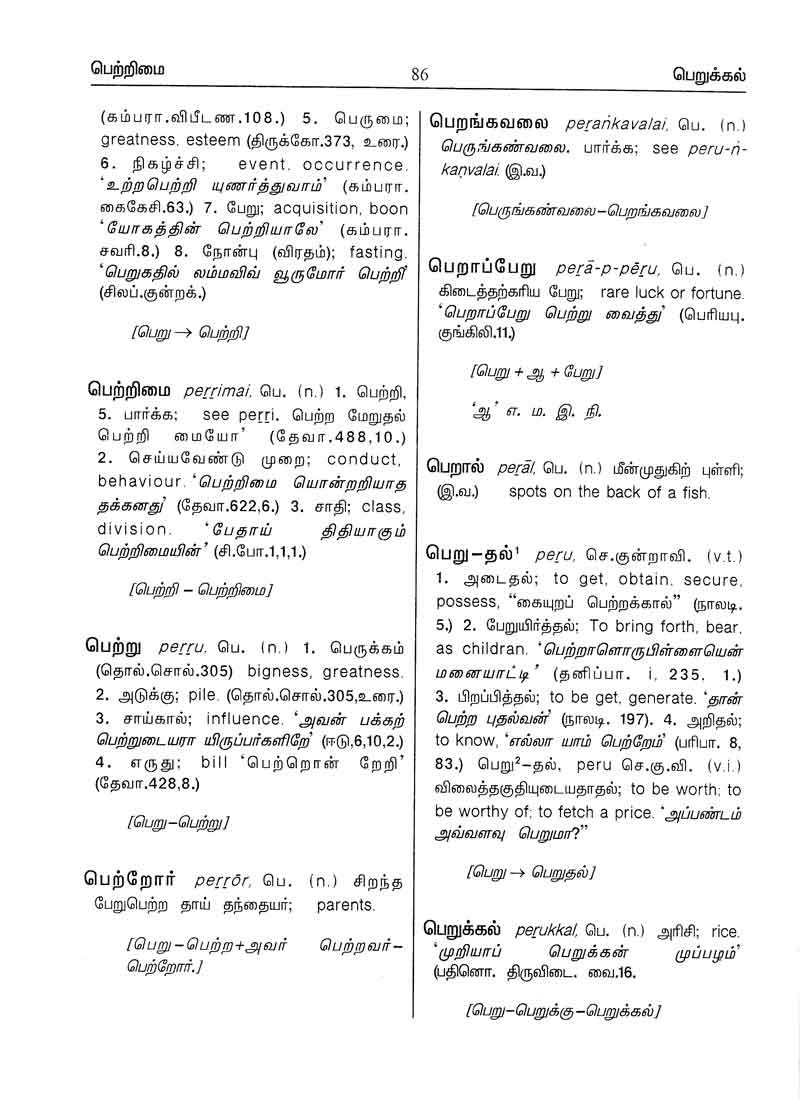 பெற்றிமை
86
பெறுக்கல்
(கம்பரா.விபீடண.108.) 5. பெருமை;
greatness, esteem (திருக்கோ.373, உரை.)
6. நிகழ்ச்சி; event. occurrence.
‘உற்றபெற்றி யுணர்த்துவாம்’ (கம்பரா.
கைகேசி.63.) 7. பேறு; acquisition, boon
‘யோகத்தின் பெற்றியாலே’ (கம்பரா.
சவரி.8.) 8. நோன்பு (விரதம்); fasting.
‘பெறுகதில் லம்மவிவ் வூருமோர் பெற்றி’
(சிலப்.குன்றக்.)
[பெறு → பெற்றி]
பெற்றிமை peṟṟimai, பெ. (n.) 1. பெற்றி,
5. பார்க்க; see peṟṟi. பெற்ற மேறுதல்
பெற்றி மையோ’ (தேவா.488,10.)
2. செய்யவேண்டு முறை; conduct,
behaviour. ‘பெற்றிமை யொன்றறியாத
தக்கனது’ (தேவா.622,6.) 3. சாதி; class,
division. ‘பேதாய் திதியாகும்
பெற்றிமையின்’ (சி.போ.1,1,1.)
[பெற்றி – பெற்றிமை]
பெற்று peṟṟu, பெ. (n.) 1. பெருக்கம்
(தொல்.சொல்.305) bigness, greatness.
2. அடுக்கு; pile. (தொல்.சொல்.305,உரை.)
3. சாய்கால்; influence. ‘அவன் பக்கற்
பெற்றுடையரா யிருப்பர்களிறே’ (ஈடு,6,10,2.)
4. எருது; bill ‘பெற்றொன் றேறி’
(தேவா.428,8.)
[பெறு–பெற்று]
பெற்றோர் peṟṟōr, பெ. (n.) சிறந்த
பேறுபெற்ற தாய் தந்தையர்; parents.
[பெறு–பெற்ற+அவர் பெற்றவர்–
பெற்றோர்.]
பெறங்கவலை peṟaṅkavalai, பெ. (n.)
பெருங்கண்வலை. பார்க்க; see peru-ṅ-
kaṇvalai. (இ.வ.)
[பெருங்கண்வலை–பெறங்கவலை]
பெறாப்பேறு peṟā-p-pēṟu, பெ. (n.)
கிடைத்தற்கரிய பேறு; rare luck or fortune.
‘பெறாப்பேறு பெற்று வைத்து’ (பெரியபு.
குங்கிலி.11.)
[பெறு + ஆ + பேறு]
‘ஆ’ எ. ம. இ. நி.
பெறால் peṟāl, பெ. (n.) மீன்முதுகிற் புள்ளி;
(இ.வ.) spots on the back of a fish.
பெறு–தல்¹ peṟu, செ.குன்றாவி. (v.t.)
1. அடைதல்; to get, obtain, secure,
possess, “கையுறப் பெற்றக்கால்” (நாலடி.
5.) 2. பேறுயிர்த்தல்; To bring forth, bear,
as childran. ‘பெற்றாளொருபிள்ளையென்
மனையாட்டி’ (தனிப்பா. i, 235, 1.)
3. பிறப்பித்தல்; to be get, generate. ‘தான்
பெற்ற புதல்வன்’ (நாலடி. 197). 4. அறிதல்;
to know, ‘எல்லா யாம் பெற்றேம்’ (பரிபா. 8,
83.) பெறு²–தல், peru செ.கு.வி. (v.i.)
விலைத்தகுதியுடையதாதல்; to be worth; to
be worthy of; to fetch a price. ‘அப்பண்டம்
அவ்வளவு பெறுமா?”
[பெறு → பெறுதல்]
பெறுக்கல் peṟukkal, பெ. (n.) அரிசி; rice.
‘முறியாப் பெறுக்கன் முப்பழம்’
(பதினொ. திருவிடை. வை.16.
[பெறு–பெறுக்கு–பெறுக்கல்]